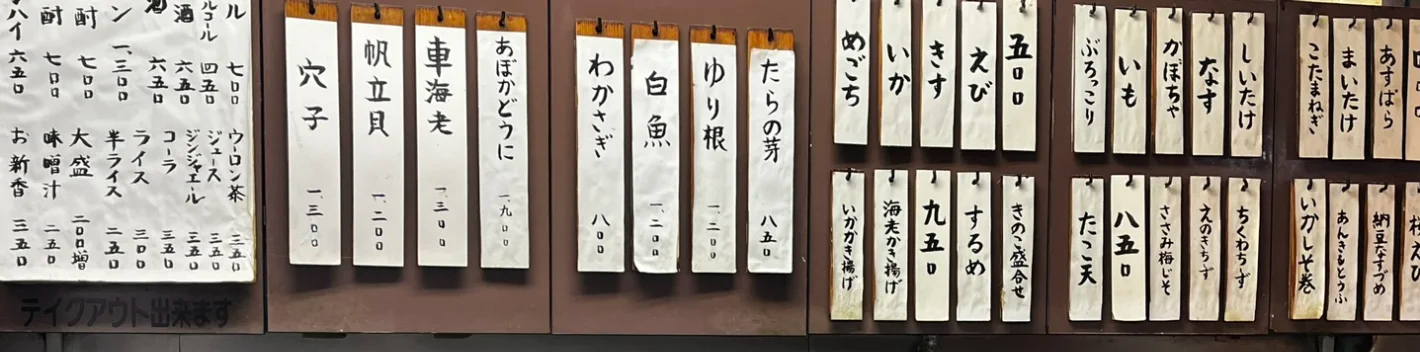 あすぱら
まいたけ
こたまねぎ
納豆なすづめ
あんきもとうふ
いかしそ巻
しいたけ
なす
かぼちゃ
いも
ぶろっこり
ちくわちず
えのきちず
ささみ梅じそ
八五〇
たこ天
五〇〇
えび
きす
いか
めごち
きのこ盛合せ
するめ
九五〇
海老かき揚げ
いかがき揚げ
たらの芽 八五〇
ゆり根 一、二〇〇
白魚 一、二〇〇
わかさぎ 八〇〇
あぼかどうに 一、九〇〇
車海老 一、三〇〇
帆立貝 一、二〇〇
穴子 一、三〇〇
ル 七〇〇
ルコール 四五〇
酒 六五〇
六五〇
ン 一、三〇〇
酎 七〇〇
酎 七〇〇
ハイ 六五〇
ウーロン茶 三五〇
ジュース 三五〇
ジンジャエール 三五〇
コーラ 三五〇
ライス 三〇〇
半ライス 二五〇
大盛 二〇〇増
味噌汁 二五〇
お新香 三五〇
テイクアウト出来ます